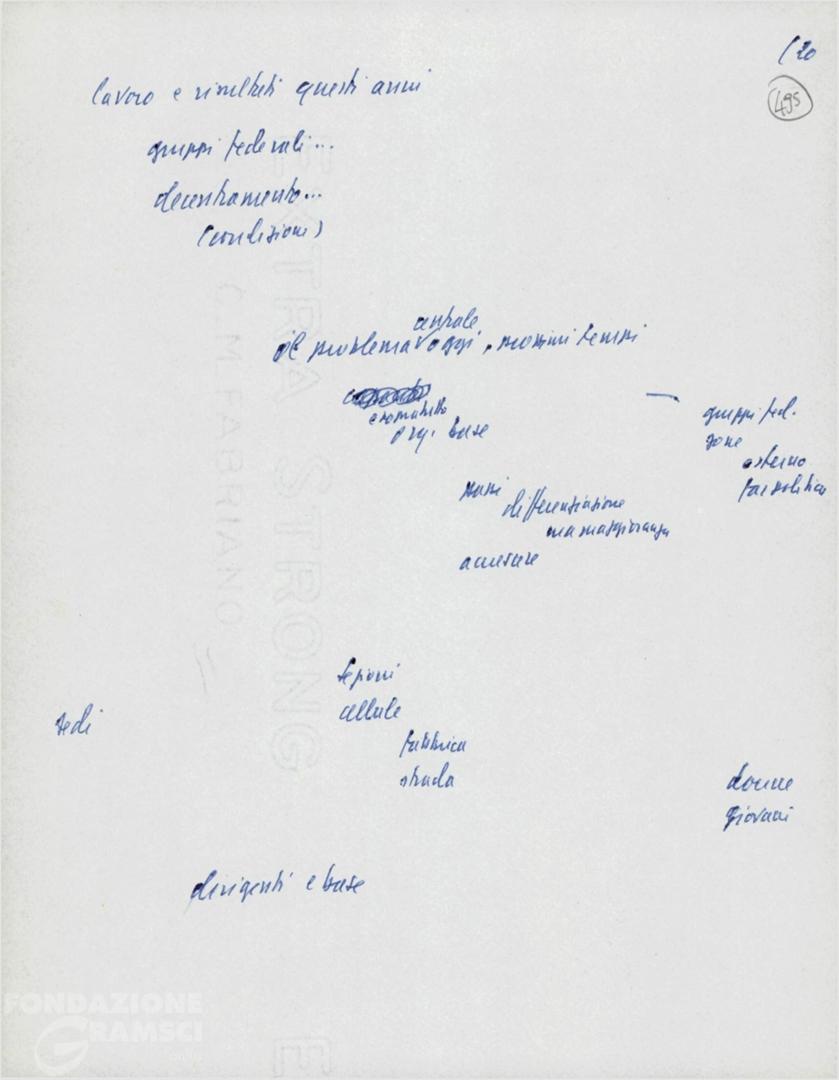 (20
495
lavoro e risultati questi anni
gruppi federali...
decentramento...
(condizione)
centrale
il problema oggi, prossimi tempi
org. base
gruppi fed.
zone
esterno
differenziazione
ma maggioranza
accrescere
sezioni
cellule
sedi
fabbrica
strada
donne
giovani
dirigenti e base
EXTRA STRONG
C.M.FABRIANO
E
FONDAZIONE
GRAMSCI